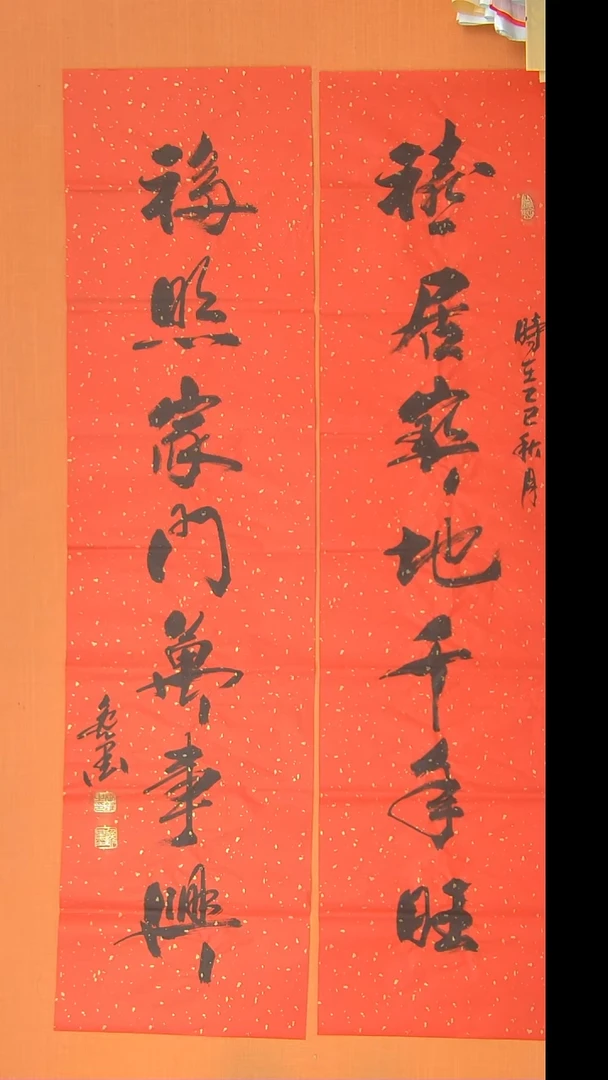 禧居寶地千年旺
時在乙巳秋月
福照家門萬事興